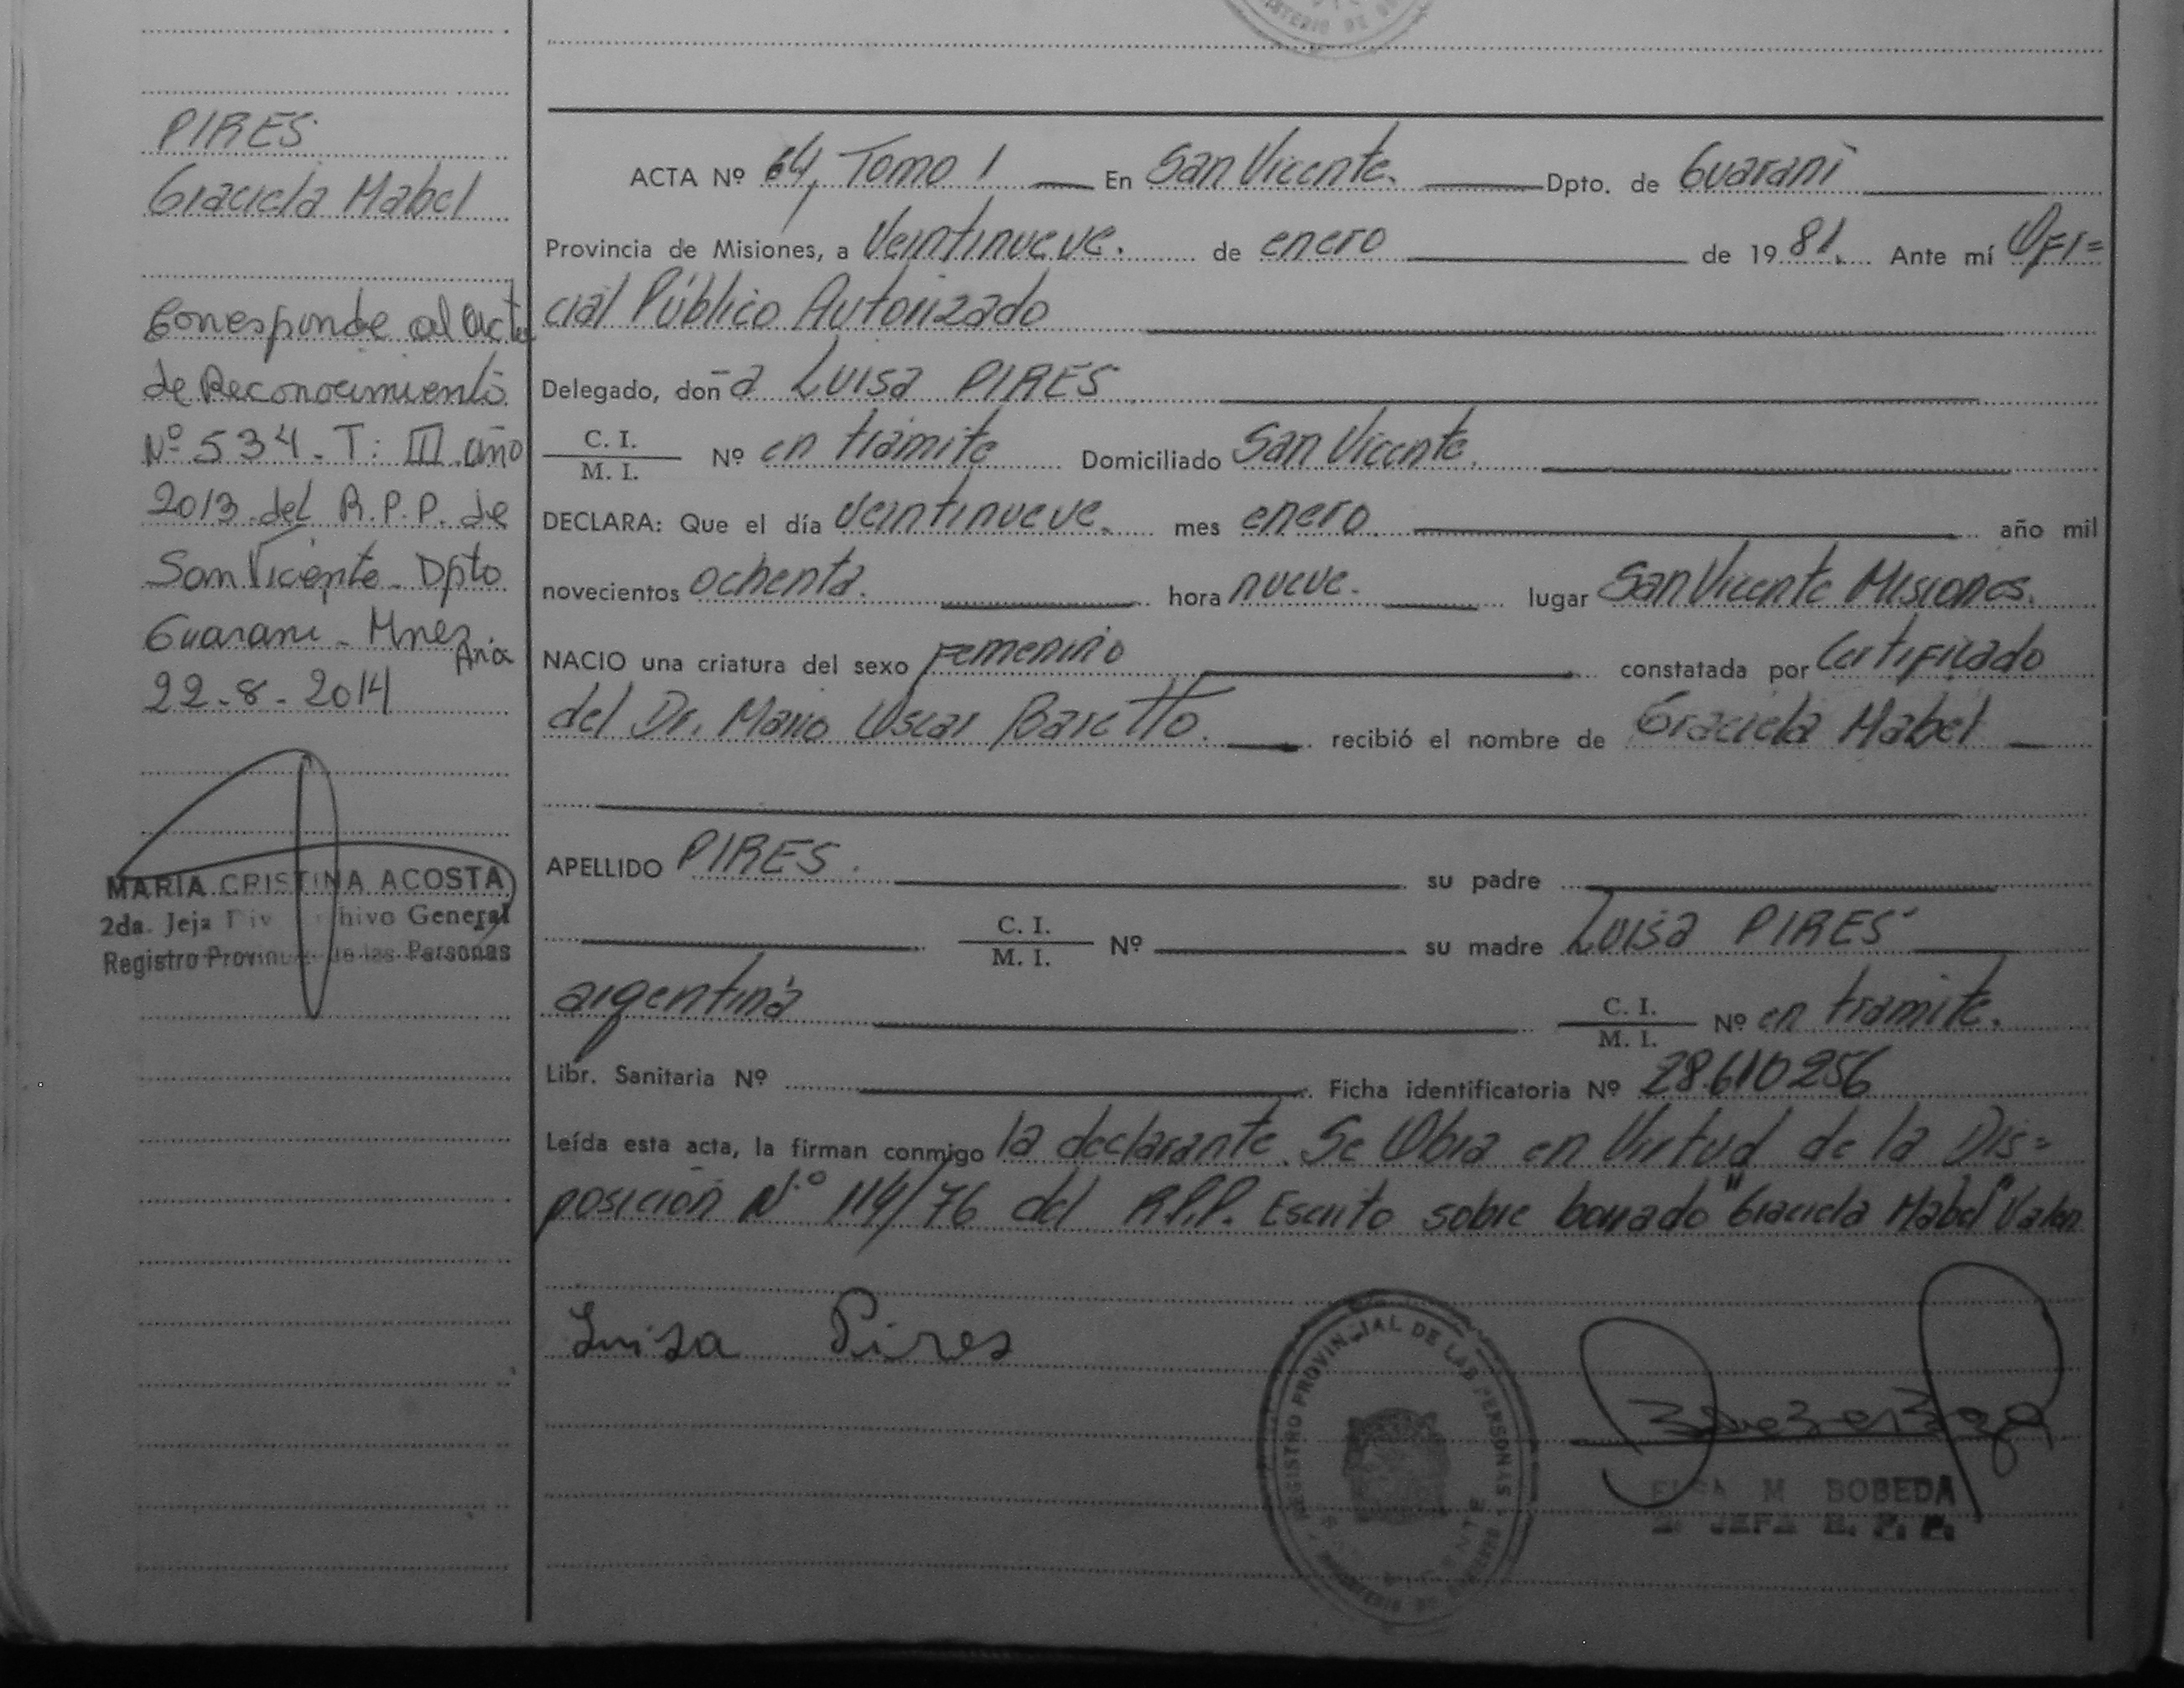 MINISTERIO DE
PIRES
Graciela Mabel
Corresponde al acta
de Reconocimiento
Nº 534 - T: III año
2013 del R.P.P. de
San Vicente - Dpto
Guarani - Mnes.
22-8-2014
MARIA CRISTINA ACOSTA
2da. Jefa Div hivo General
Registro Provin de las Personas
ACTA Nº 64, Tomo 1 En San Vicente. Dpto. de Guaraní
Provincia de Misiones, a Veintinueve. de enero de 19 81. Ante mí Ofi=
cial Público Autorizado
Delegado, doña Luisa PIRES
C. I.
M. I. Nº en trámite Domiciliado San Vicente.
DECLARA: Que el día veintinueve. mes enero año mil
novecientos ochenta. hora nueve. lugar San Vicente Misiones.
NACIO una criatura del sexo Femenino constatada por Certificado
del Dr. Mario Oscar recibió el nombre de Graciela Mabel
APELLIDO PIRES. su padre
C. I.
M. I. Nº su madre Luisa PIRES
argentina C. I.
M. I. Nº en tramite.
Libr. Sanitaria Nº Ficha identificatoria Nº 28.610256
Leída esta acta, la firman conmigo la declarante. Se Obra en Virtud de la Dis=
posición N.º 114/76 del R.P.P. Escrito sobre borrado "Graciela Mabel" Valen
Luisa Pires
REGISTRO PROVINCIAL DE LAS PERSONAS
M BOBEDA
JEFA R. P. P.